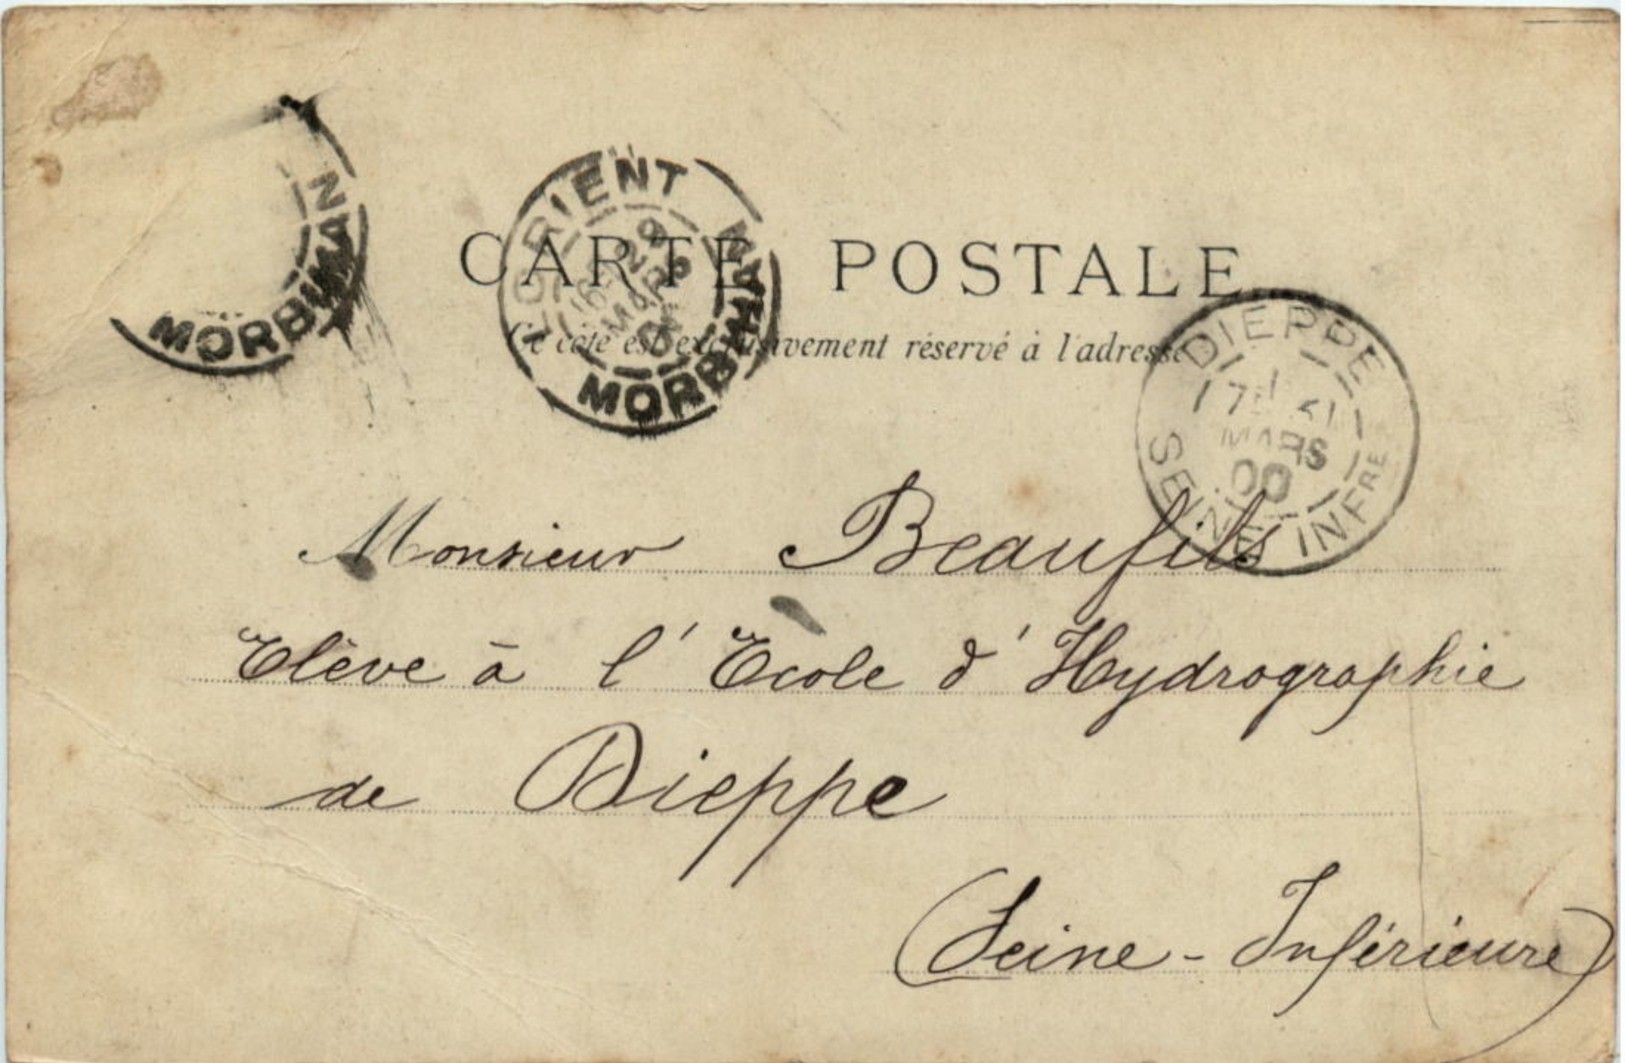 MORBIHAN
LORIENT
16E 29
MARS
00
MORBIHAN
CARTE POSTALE
Ce côté est exclusivement réservé à l'adresse
DIEPPE
7E 31
MARS
00
SEINE INFRE
Monsieur Beaufils
Elève à l'Ecole d'Hydrographie
de Dieppe
(Seine-Inférieure)